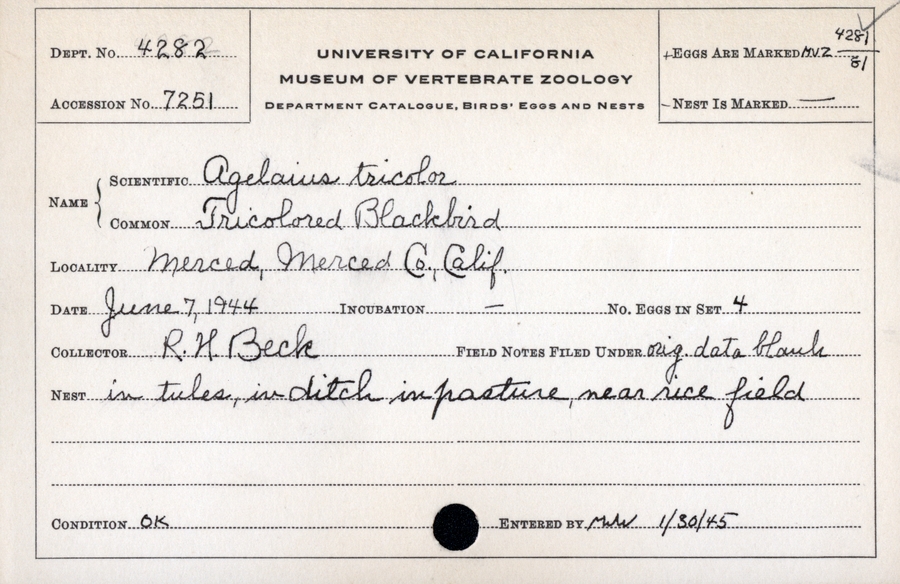 DEPT. No. 4282
ACCESSION No. 7251
UNIVERSITY OF CALIFORNIA
MUSEUM OF VERTEBRATE ZOOLOGY
DEPARTMENT CATALOGUE, BIRDS' EGGS AND NESTS
EGGS ARE MARKED MVZ 4281/81
NEST IS MARKED —
NAME
SCIENTIFIC Agelaius tricolor
COMMON Tricolored Blackbird
LOCALITY Merced, Merced Co., Calif.
DATE June 7, 1944 INCUBATION — No. EGGS IN SET 4
COLLECTOR R. H. Beck FIELD NOTES FILED UNDER orig. data blank
NEST in tules, in ditch in pasture, near rice field
CONDITION OK ENTERED BY 1/30/45